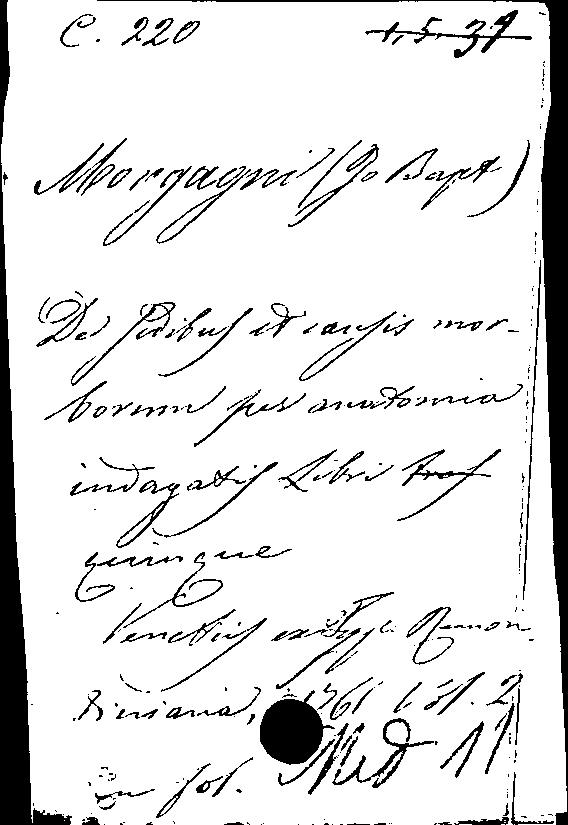 C. 220 1.5.37
Morgagni (Jo Bapt)
De Sedibus et causis mor-
borum per anatomia
indagatis Libri tres
quinque
Venetiis ex Typ. Remon
diniana, 1761 Vol. 2
in fol. Med 11